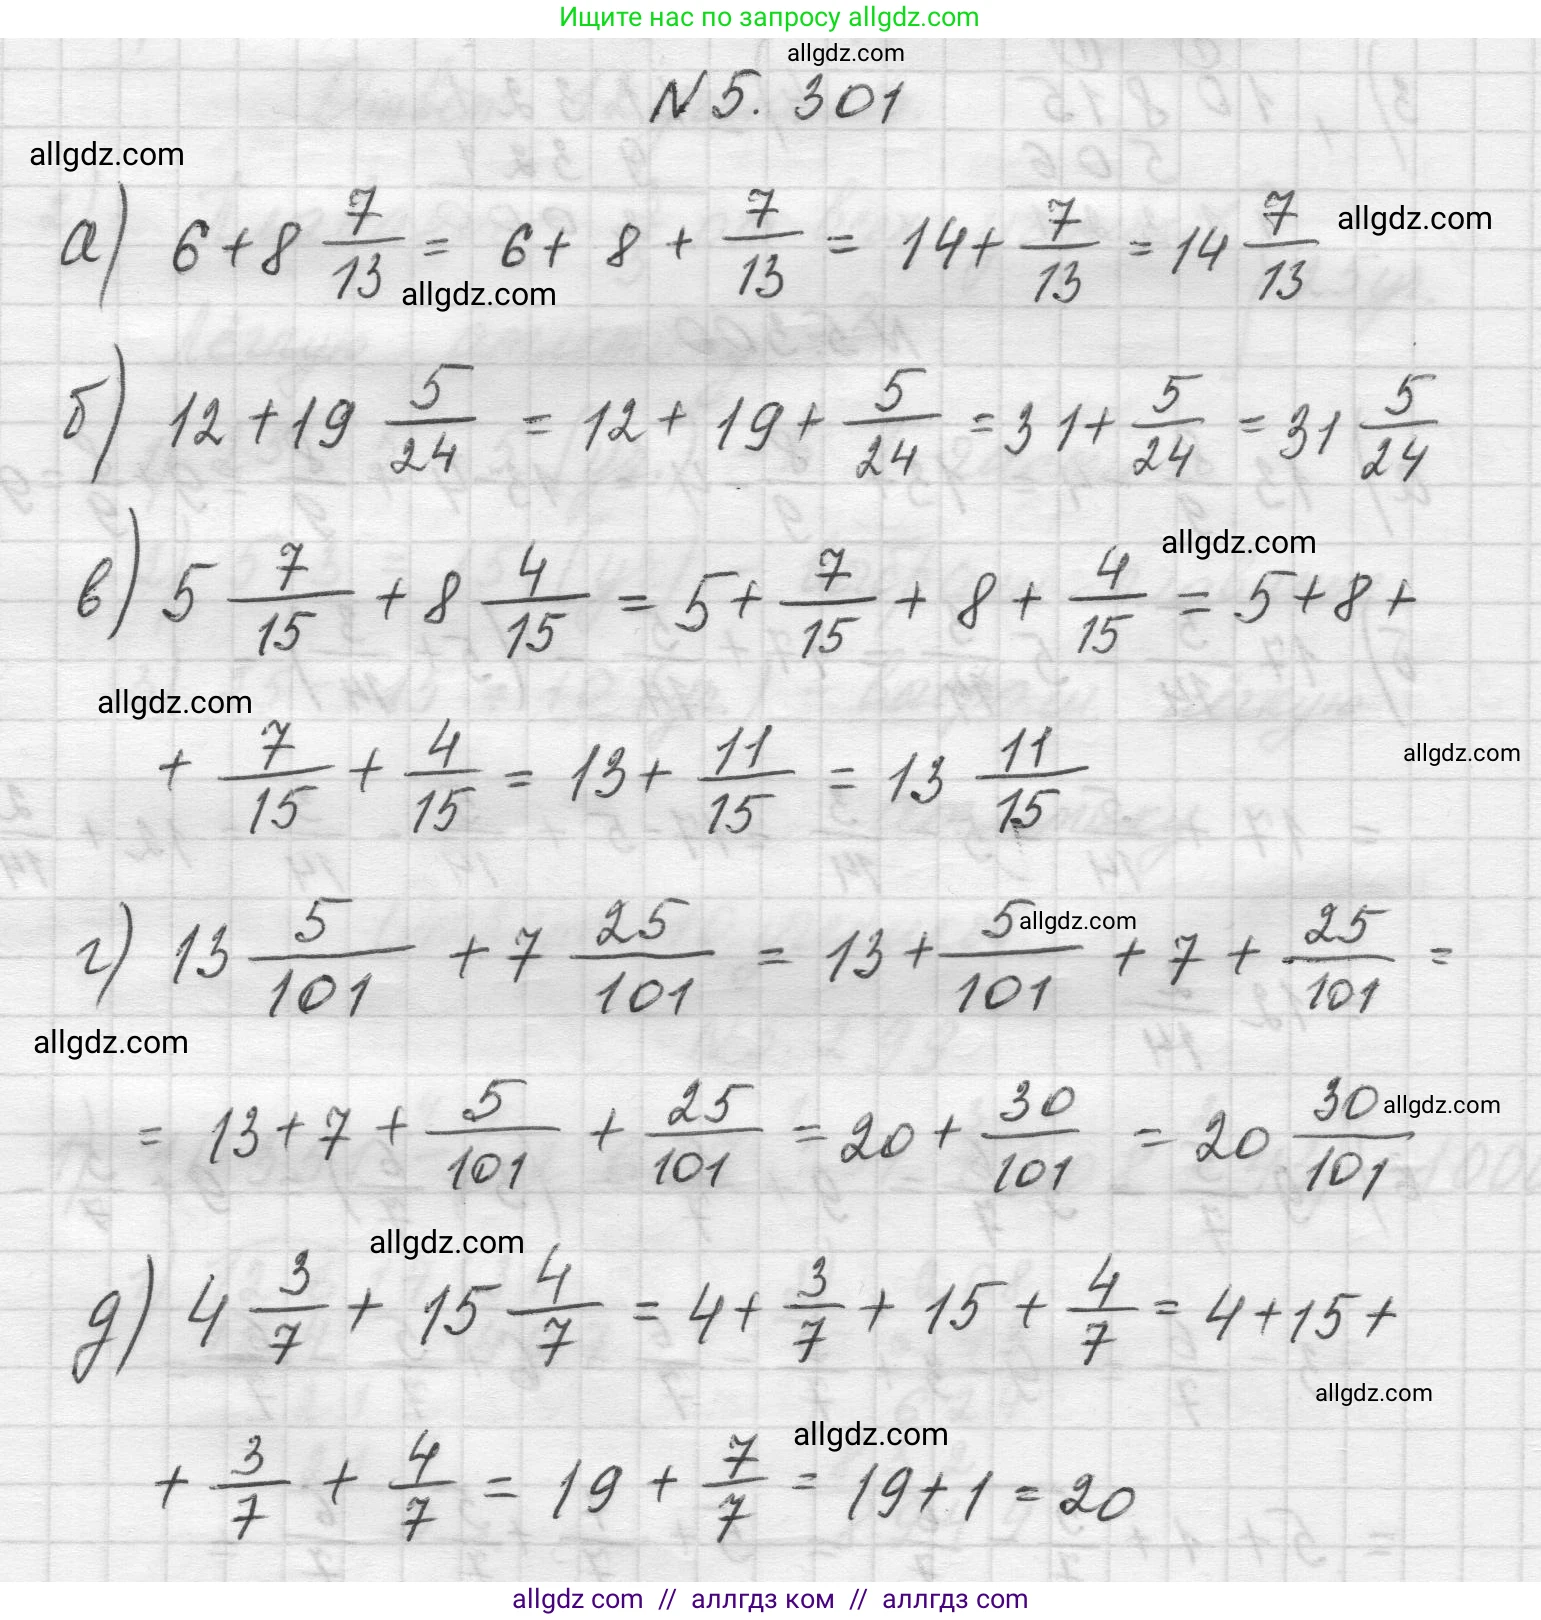 Ищите нас по запросу allgdz.com
allgdz.com
N 5. 301
allgdz.com
а) 6 + 8 7/13 = 6 + 8 + 7/13 = 14 + 7/13 = 14 7/13 allgdz.com
allgdz.com
б) 12 + 19 5/24 = 12 + 19 + 5/24 = 31 + 5/24 = 31 5/24
allgdz.com
в) 5 7/15 + 8 4/15 = 5 + 7/15 + 8 + 4/15 = 5 + 8 +
allgdz.com
+ 7/15 + 4/15 = 13 + 11/15 = 13 11/15
allgdz.com
г) 13 5/101 + 7 25/101 = 13 + 5/101 + 7 + 25/101 =
allgdz.com
allgdz.com
= 13 + 7 + 5/101 + 25/101 = 20 + 30/101 = 20 30/101
allgdz.com
allgdz.com
д) 4 3/7 + 15 4/7 = 4 + 3/7 + 15 + 4/7 = 4 + 15 +
allgdz.com
allgdz.com
+ 3/7 + 4/7 = 19 + 7/7 = 19 + 1 = 20
allgdz com // аллгдз ком // allgdz com